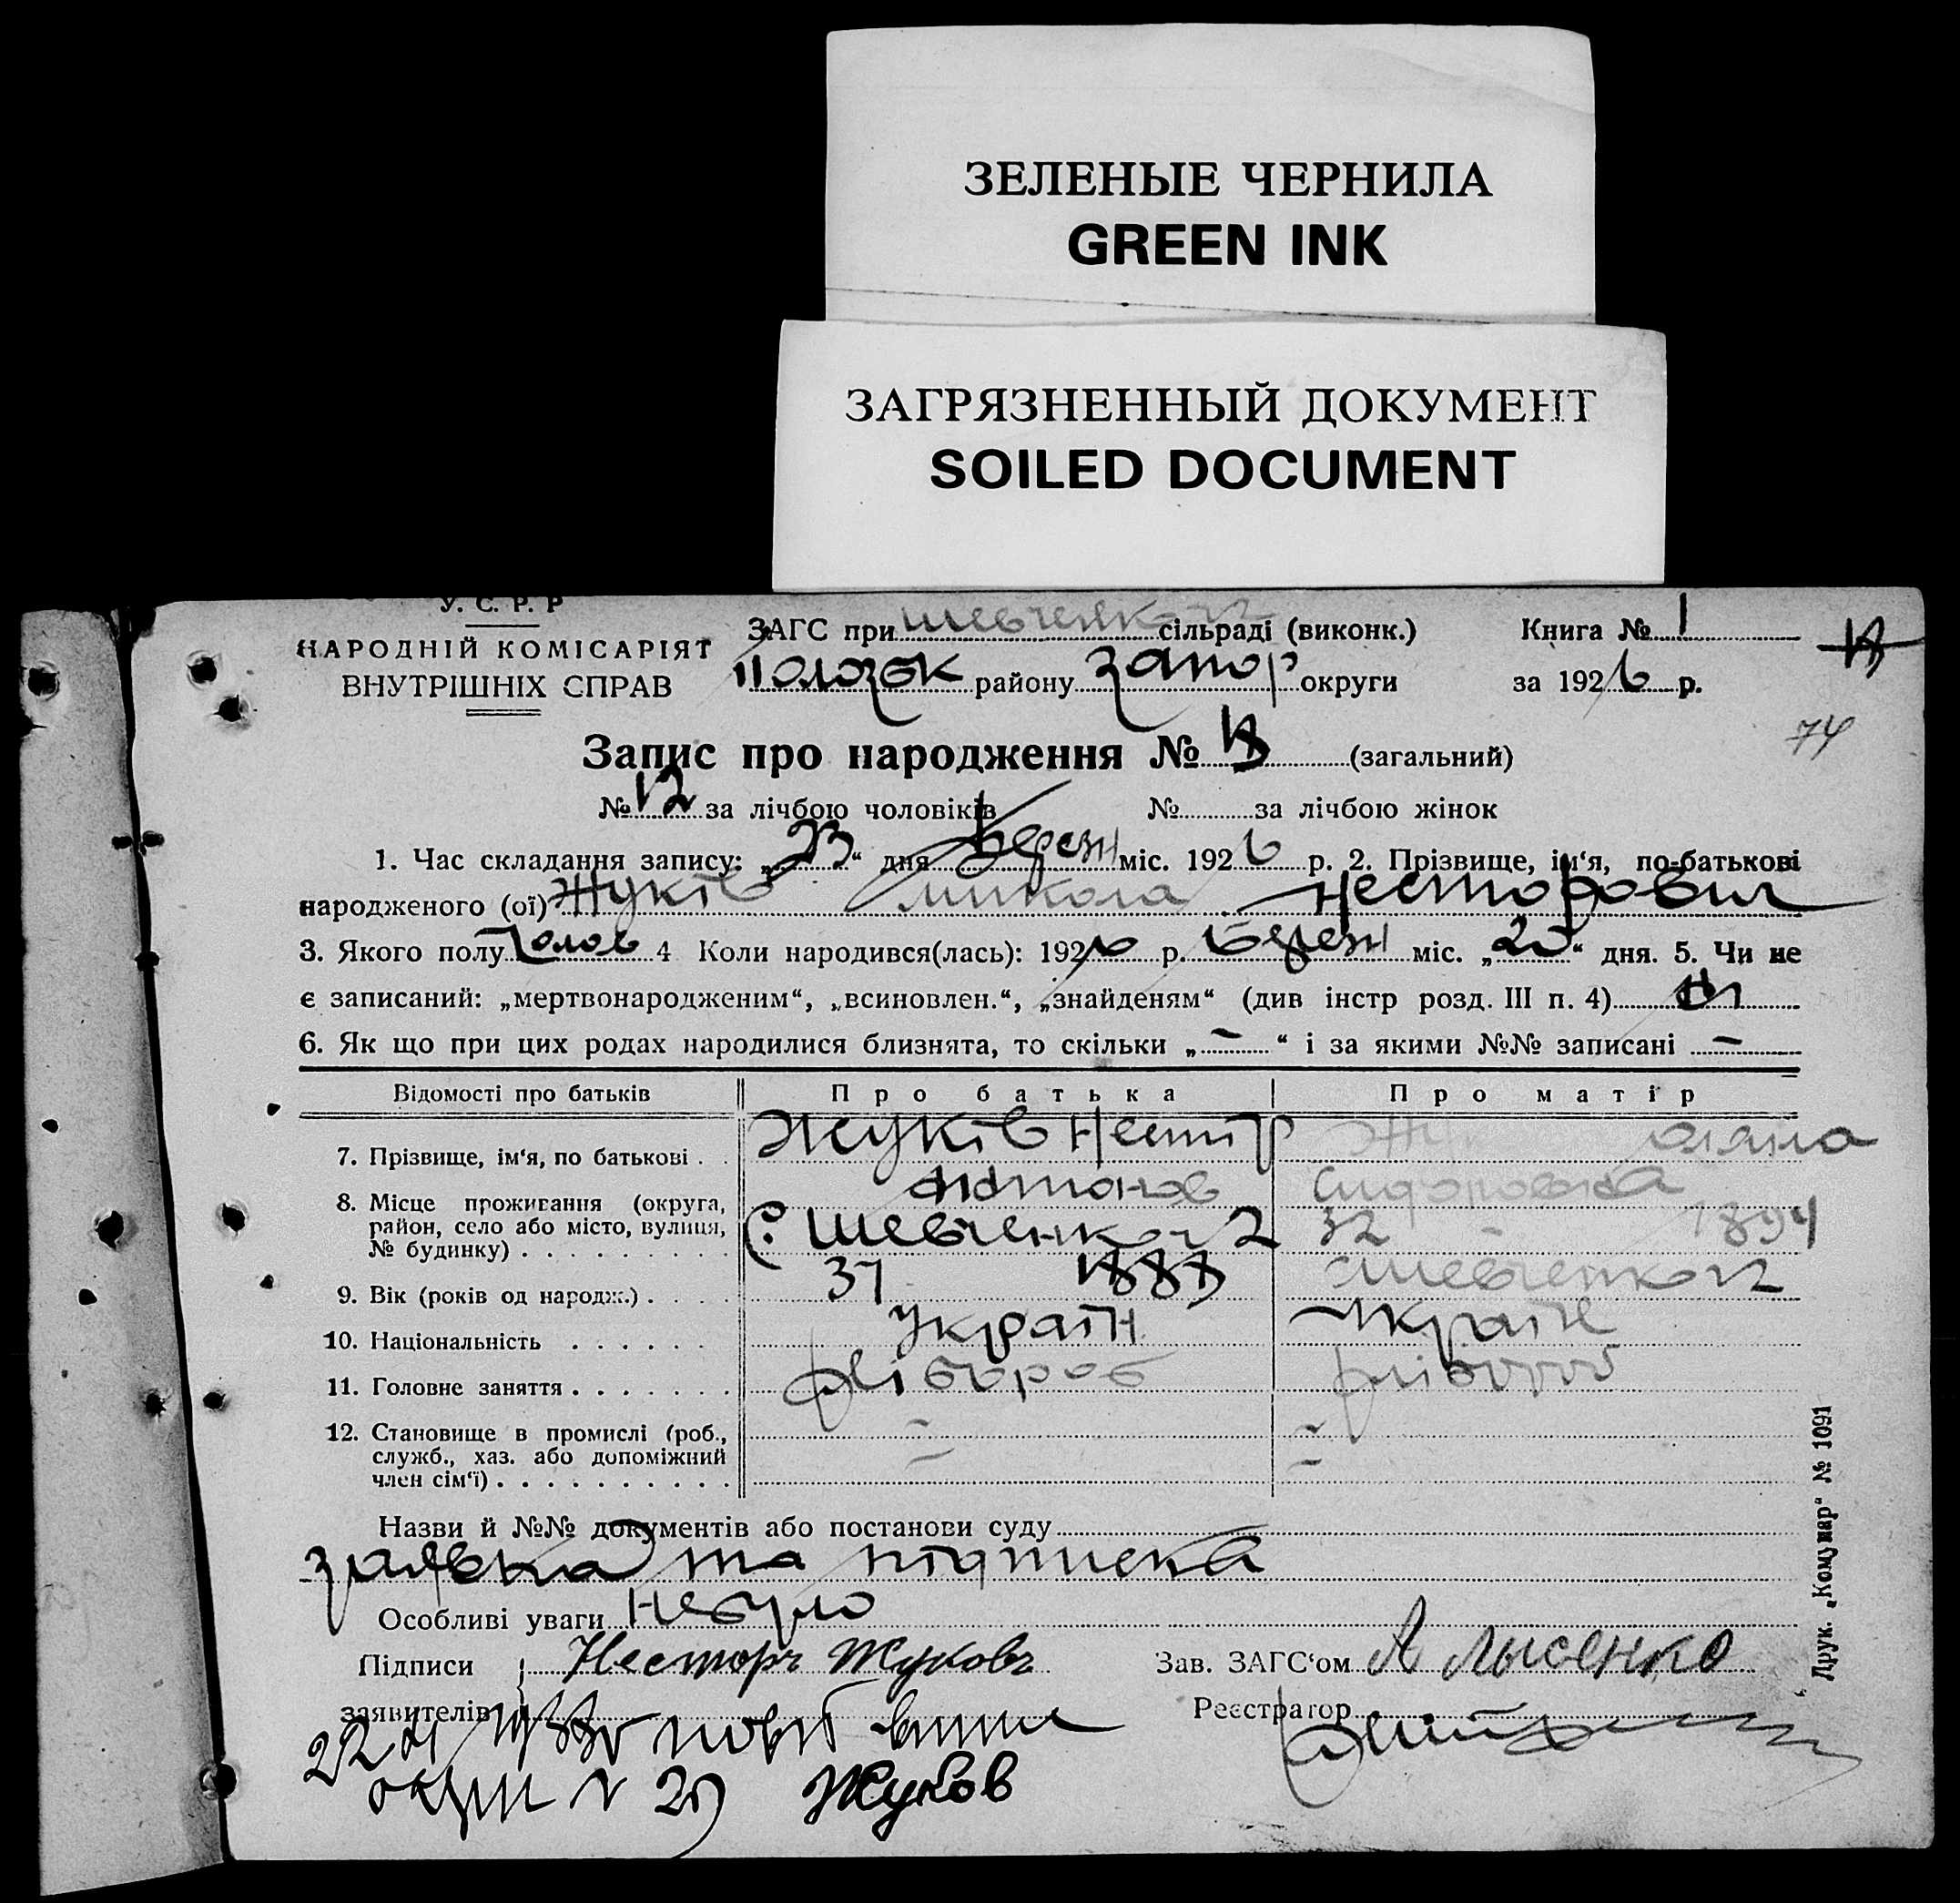 ЗЕЛЕНЫЕ ЧЕРНИЛА
GREEN INK
ЗАГРЯЗНЕННЫЙ ДОКУМЕНТ
SOILED DOCUMENT
У. С. Р. Р
НАРОДНІЙ КОМІСАРІЯТ
ВНУТРІШНІХ СПРАВ
ЗАГС при сільраді (виконк.)
Полозьк району Запор округи
Книга № 1
за 1926 р.
74
Запис про народження № 18 (загальний)
№ 12 за лічбою чоловіків № за лічбою жінок
1. Час складання запису: „23“ дня Березн міс. 1926 р. 2. Прізвище, ім‘я, по-батькові
народженого (ої) Жуків Микола Несторович
3. Якого полу Чолов 4 Коли народився(лась): 1926 р. Березн міс. „20“ дня. 5. Чи не
є записаний: „мертвонародженим“, „всиновлен.“, „знайденям“ (див інстр розд. III п. 4) ні
6. Як що при цих родах народилися близнята, то скільки „ — “ і за якими №№ записані —
Відомості про батьків Про батька Про матір
7. Прізвище, ім‘я, по батькові . . Жуків Нестір
Антонов Сидоровна
8. Місце проживання (округа,
район, село або місто, вулиця,
№ будинку) . . . . . . . . . С. Шевченко 32 1894
9. Вік (років од народж.) . . . . 37 1888
10. Національність . . . . . . Україн Україн
11. Головне заняття . . . . . . . хлібороб хлібороб
12. Становище в промислі (роб., –
служб., хаз. або допоміжний
член сім‘ї) . . . . . . . . . . – –
Назви й №№ документів або постанови суду
заявка та підписка
Особливі уваги небуло
Підписи Несторъ Жуковъ Зав. ЗАГС‘ом А Лысенко
заявителів Реєстратор
22
Жуков
Друк. „Комунар“ № 1091